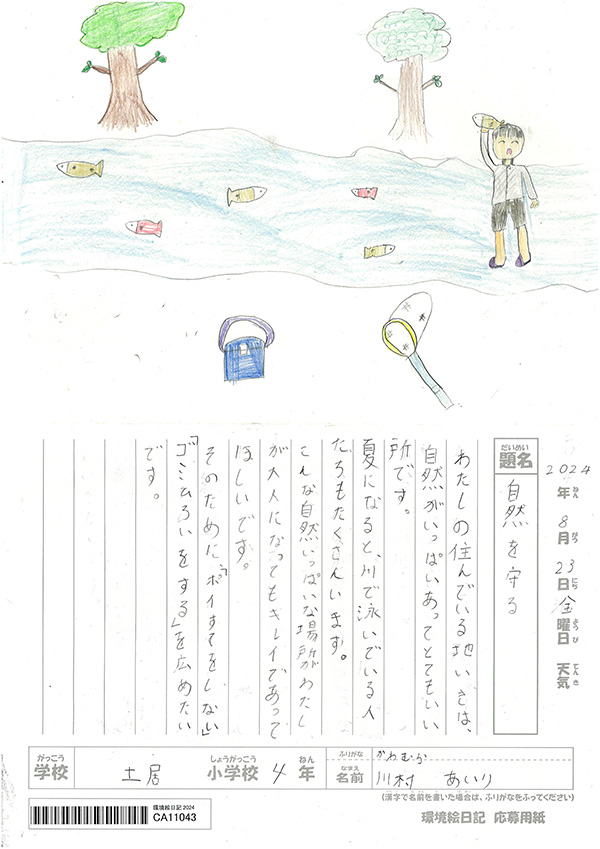 2024年8月23日金曜日 天気
ねん がつ にち ようび てんき
だいめい
題名 自然を守る
わたしの住んでいる地いきは、
自然がいっぱいあってとてもいい
所です。
夏になると、川で泳いでいる人
たちもたくさんいます。
こんな自然いっぱいな場所がわたし
が大人になってもキレイであって
ほしいです。
そのために、「ポイすてをしない」
「ゴミひろいをする」を広めたい
です。
がっこう しょうがっこう ねん
学校 土居 小学校 4年
ふりがな かわむら
なまえ
名前 川村 あいり
(漢字で名前を書いた場合は、ふりがなをふってください)
環境絵日記 2024
CA11043
環境絵日記 応募用紙